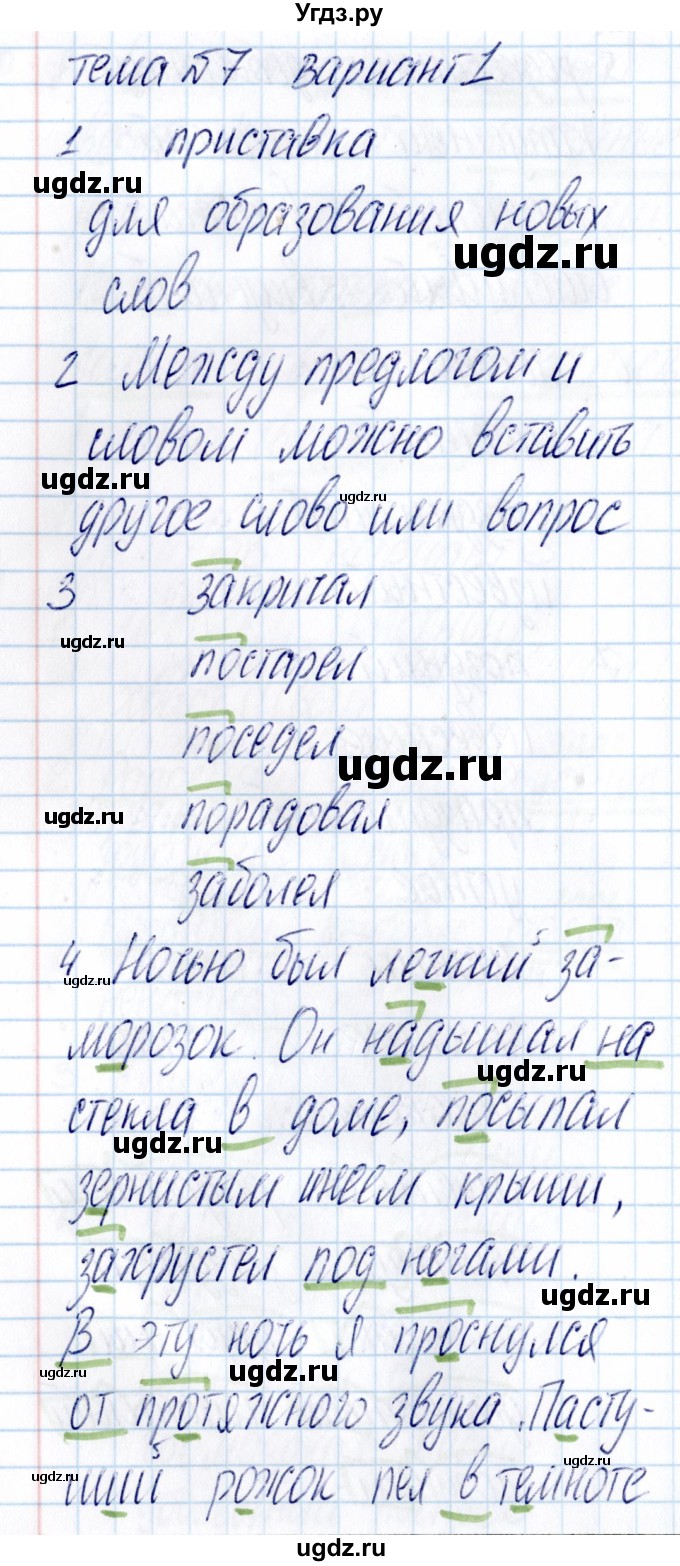 Угдз.ру
тема №7 вариант 1
1 приставка
ugdz.ru
для образования новых
ugdz.ru
слов
2 Между предлогом и
словом можно вставить
ugdz.ru
ugdz.ru
другое слово или вопрос
3 закричал
ugdz.ru
постарел
поседел
ugdz.ru
ugdz.ru
порадовал
заболел
4 Ночью был легкий за-
ugdz.ru
морозок. Он надышал на
ugdz.ru
стекла в доме, посыпал
ugdz.ru
зернистым инеем крыши,
захрустел под ногами.
ugdz.ru
В эту ночь я проснулся
ugdz.ru
ugdz.ru
от протяжного звука. Пасту-
ugdz.ru
ugdz.ru
ший рожок пел в темноте
ugdz.ru